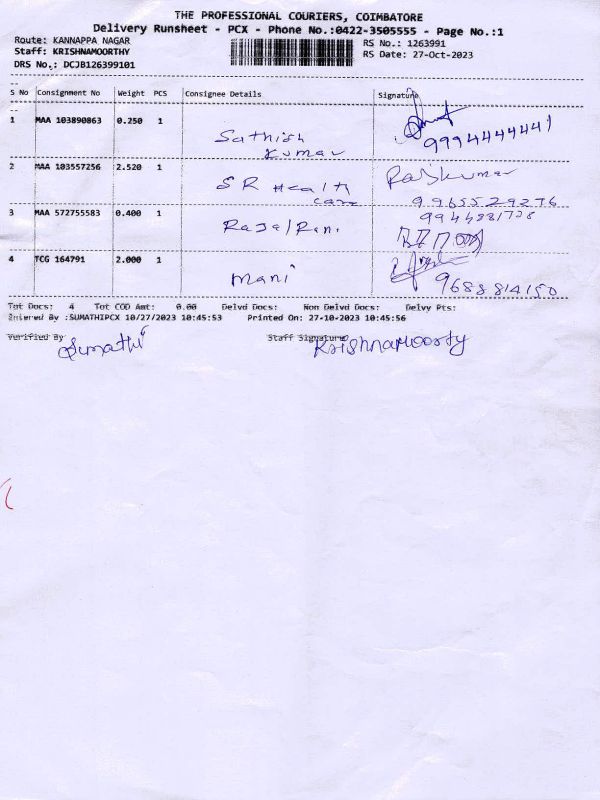 THE PROFESSIONAL COURIERS, COIMBATORE
Delivery Runsheet - PCX - Phone No.:0422-3505555 - Page No.:1
Route: KANNAPPA NAGAR RS No.: 1263991
Staff: KRISHNAMOORTHY RS Date: 27-Oct-2023
DRS No.: DCJB126399101
S No Consignment No Weight PCS Consignee Details Signature
1 MAA 103890863 0.250 1
Sathish 9994444441
Kumar
2 MAA 103557256 2.520 1 Rajkumar
SR Health 9965529276
care
3 MAA 572755583 0.400 1 9944881728
Raja/Rani
4 TCG 164791 2.000 1
Mani 9688814150
Tot Docs: 4 Tot COD Amt: 0.00 Delvd Docs: Non Delvd Docs: Delvy Pts:
Entered By :SUMATHIPCX 10/27/2023 10:45:53 Printed On: 27-10-2023 10:45:56
Verified By Staff Signature
Sumathi Krishnamoorty